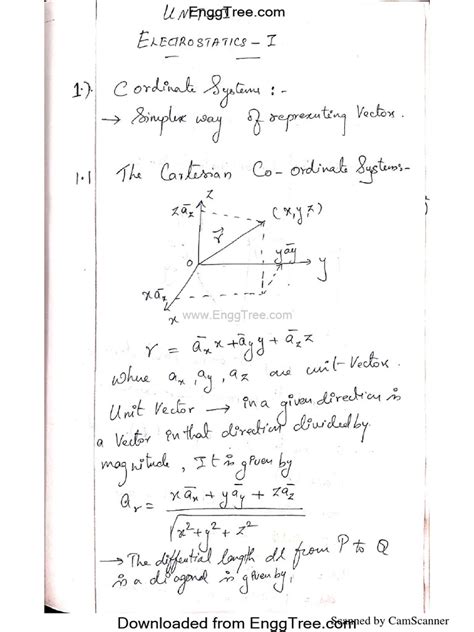 UNIT
EnggTree.com
ELECTROSTATICS - I
1.) Coordinate Systems :-
→ Simplex way of representing Vector.
1.1 The Cartesian Co-ordinate Systems-
z
zāz
(x,y,z)
r̄
yāy
0
y
xāz
x
www.EnggTree.com
r = āx x + āy y + āz z
where ax, ay, az are unit Vector.
Unit Vector → in a given direction is
a Vector in that direction divided by
magnitude, It is given by
ar = xāx + yāy + zāz
√x²+y²+z²
→ The diffential length dl from P to Q
is a diagonal is given by,
Downloaded from EnggTree.com
Scanned by CamScanner